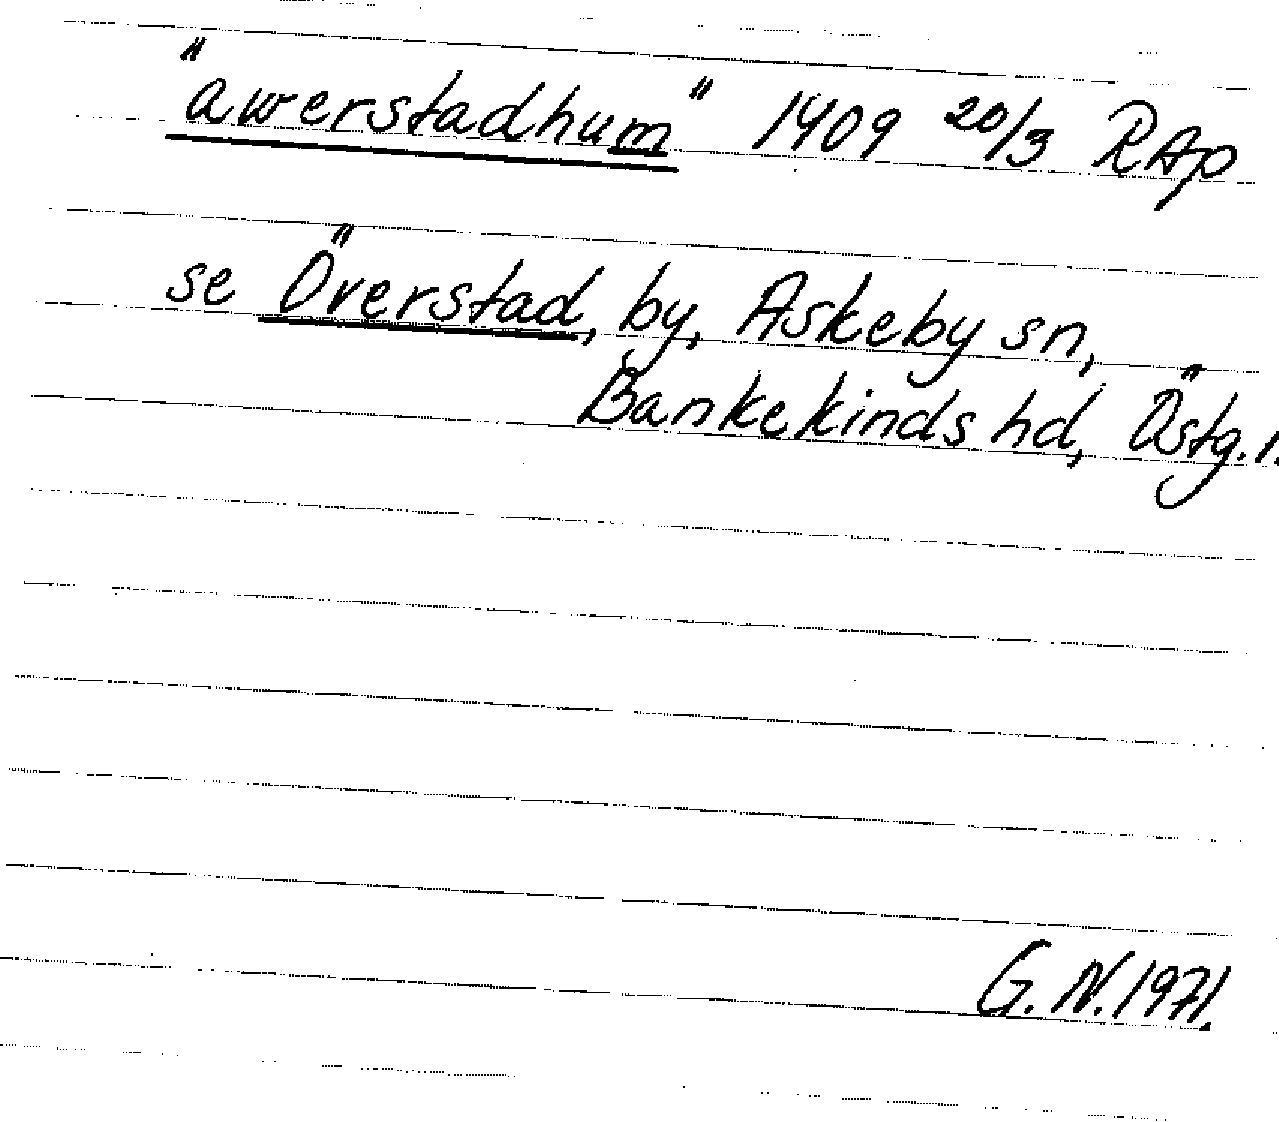 "awerstadhum" 1409 20/3 RAp
se Överstad, by, Askeby sn,
Bankekinds hd, Östg. l.
G. N. 1971.